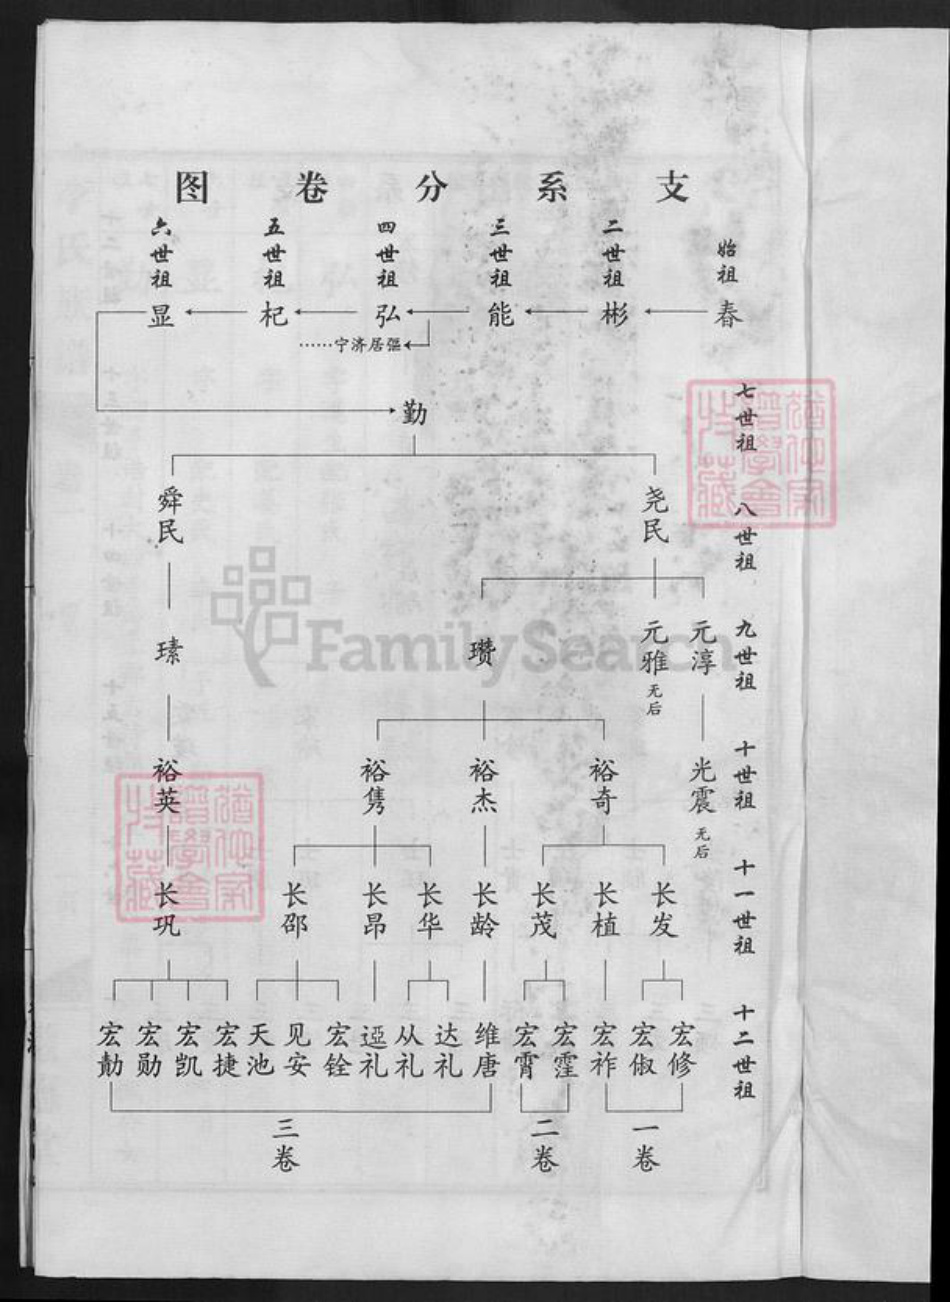 支系分卷图
始祖 春
二世祖 彬
三世祖 能
四世祖 弘
五世祖 杞
六世祖 显
宁济居强……
七世祖
勤
八世祖
尧民
舜民
九世祖
元淳
元雅 无后
瓒
瑧
十世祖
光震 无后
裕奇
裕杰
裕隽
裕英
十一世祖
长发
长植
长茂
长龄
长华
长昂
长邵
长巩
十二世祖
宏修
宏俶
宏祚
宏霔
宏霄
维唐
达礼
从礼
迺礼
宏铨
见安
天池
宏捷
宏凯
宏勋
宏勣
一卷
二卷
三卷
FamilySearch